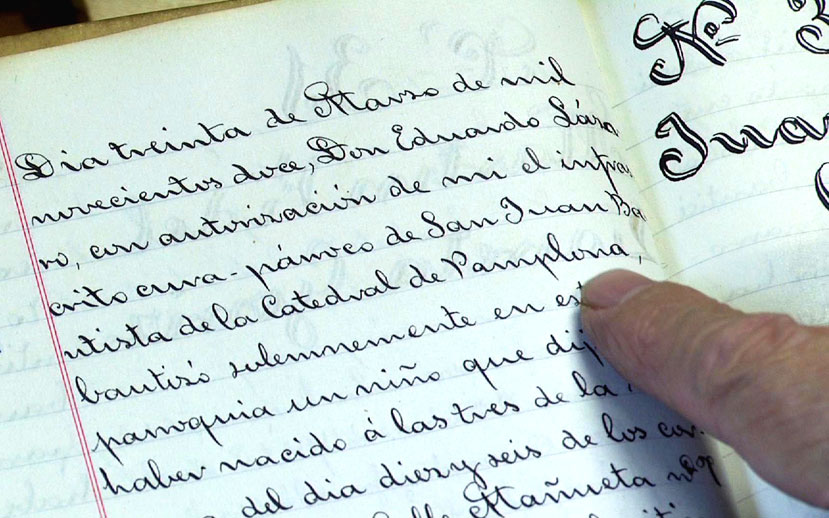 Dia treinta de Marzo de mil
novecientos doce, Don Eduardo Láza
ro, con autorización de mi el infras
crito cura-párroco de San Juan Ba
utista de la Catedral de Pamplona,
bautizó solemnemente en est
parroquia un niño que dij
haber nacido á las tres de la
del dia diez y seis de los cor
Calle Mañueta nº 9
Nº 3
Jua